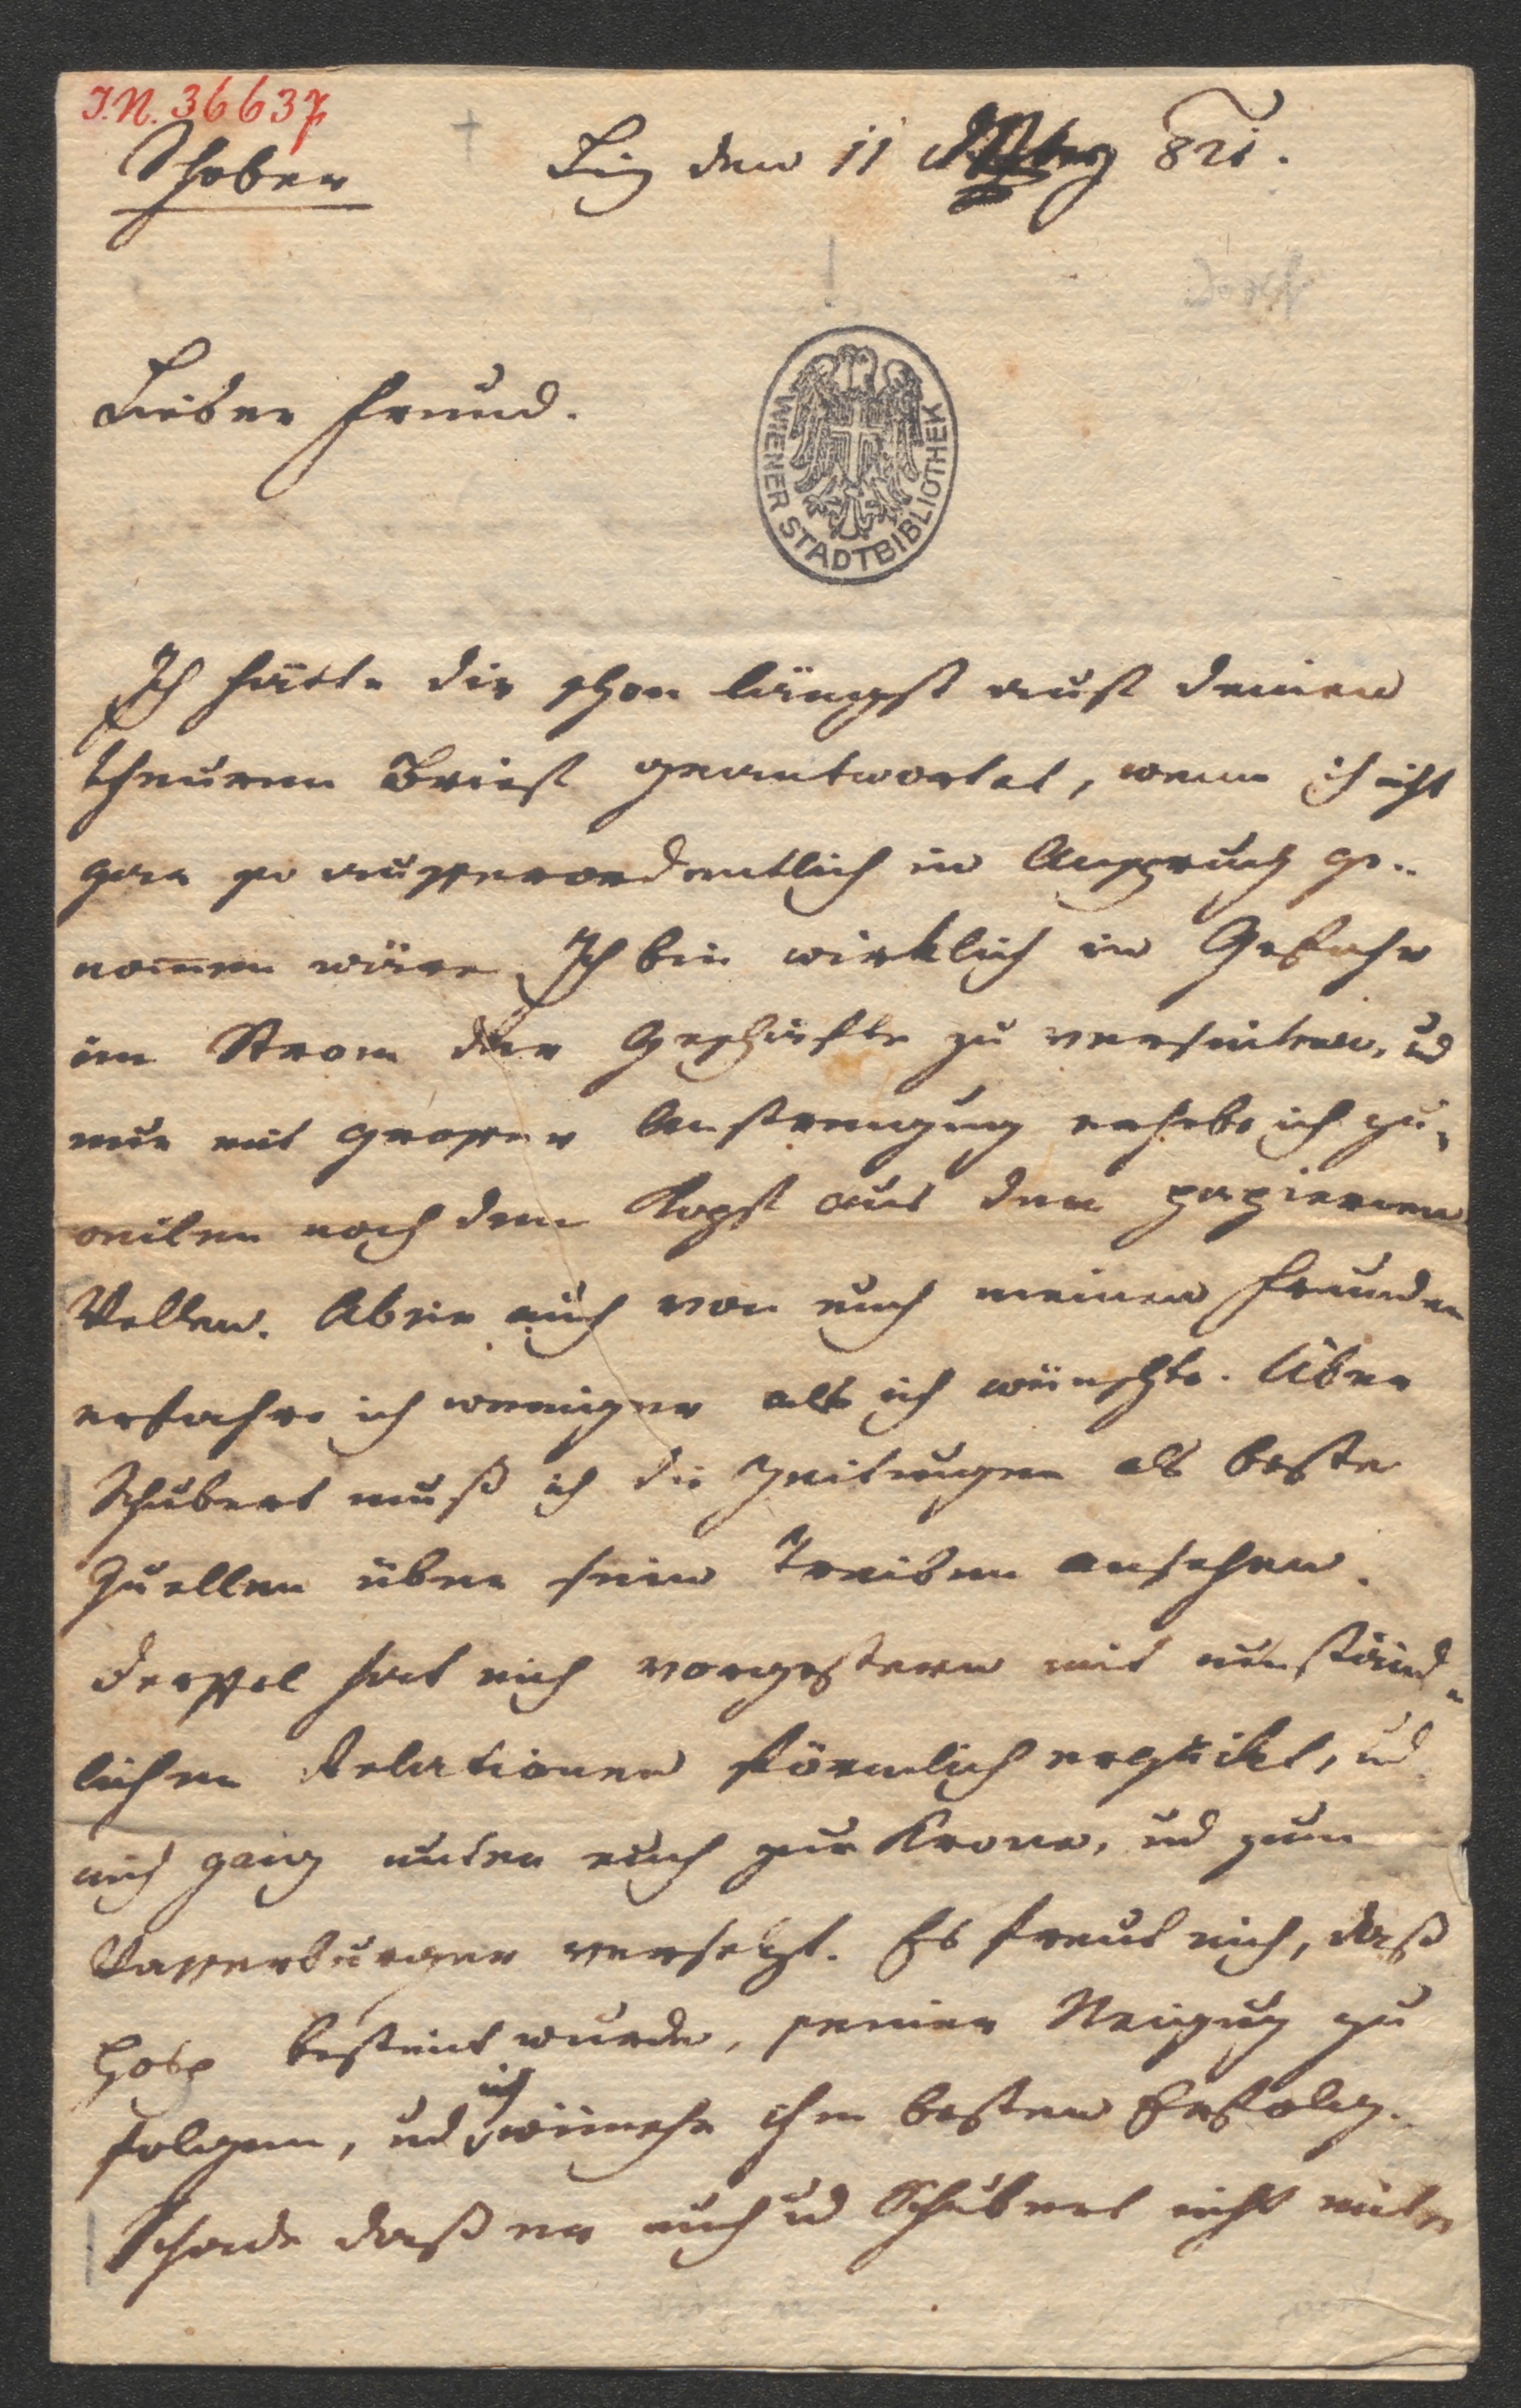 I.N. 36637
Schober
Linz den 11 821.
Lieber Freund.
WIENER STADTBIBLIOTHEK
Ich hätte dir schon längst auf deinen
theuren Brief geantwortet, wenn ich nicht
gar so ausserordentlich in Anspruch ge-
nom̅en wäre. Ich bin wirklich in Gefahr
im Strom der Geschäfte zu versinken, ud
nur mit grosser Anstrengung erhebe ich zu-
weilen noch den Kopf aus den papiernen
Wellen. Aber auch von euch meinen Freunden
erfahre ich weniger als ich wünschte. Über
Schubert muß ich die Zeitungen als beste
Quellen über sein Treiben ansehen.
Derffel hat mich vorgestern mit umständ-
lichen Relationen förmlich erquikt, ud
mich ganz unter euch zur Krone, ud zum
Wasserburger versetzt. Es freut mich, daß
Hobp bestim̅t wurde, seiner Neigung zu
folgen, ud ich wünsche ihm besten Erfolg.
Schade daß er euch ud Schubert nicht mehr